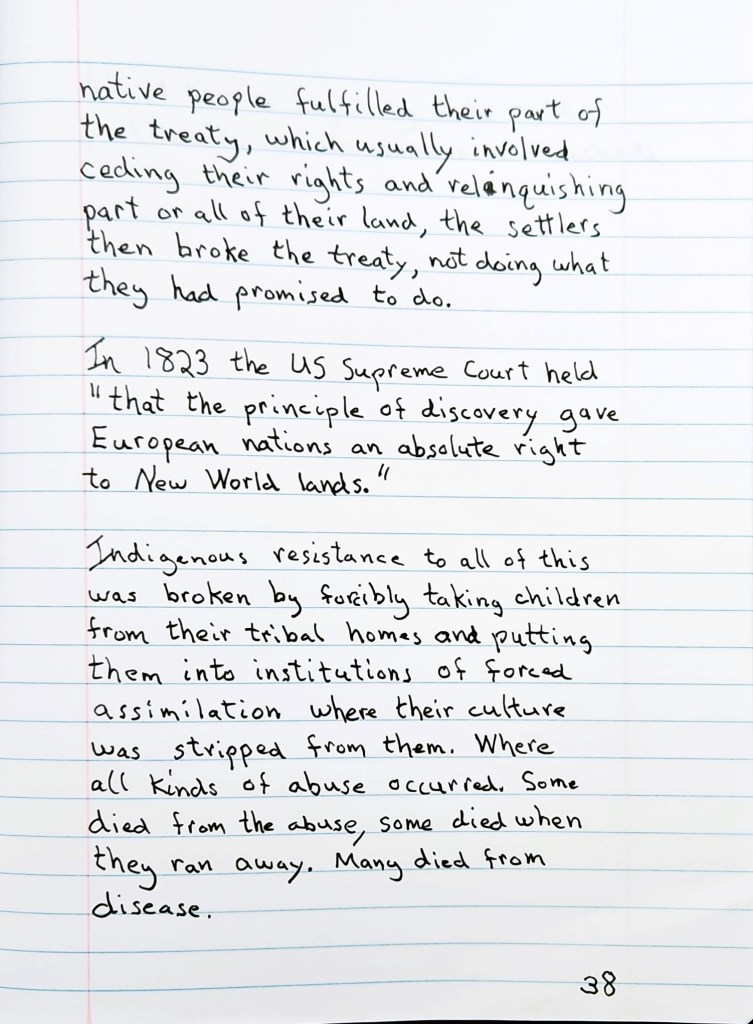 native people fulfilled their part of
the treaty, which usually involved
ceding their rights and relinquishing
part or all of their land, the settlers
then broke the treaty, not doing what
they had promised to do.
In 1823 the US Supreme Court held
"that the principle of discovery gave
European nations an absolute right
to New World lands."
Indigenous resistance to all of this
was broken by forcibly taking children
from their tribal homes and putting
them into institutions of forced
assimilation where their culture
was stripped from them. Where
all kinds of abuse occurred. Some
died from the abuse, some died when
they ran away. Many died from
disease.
38